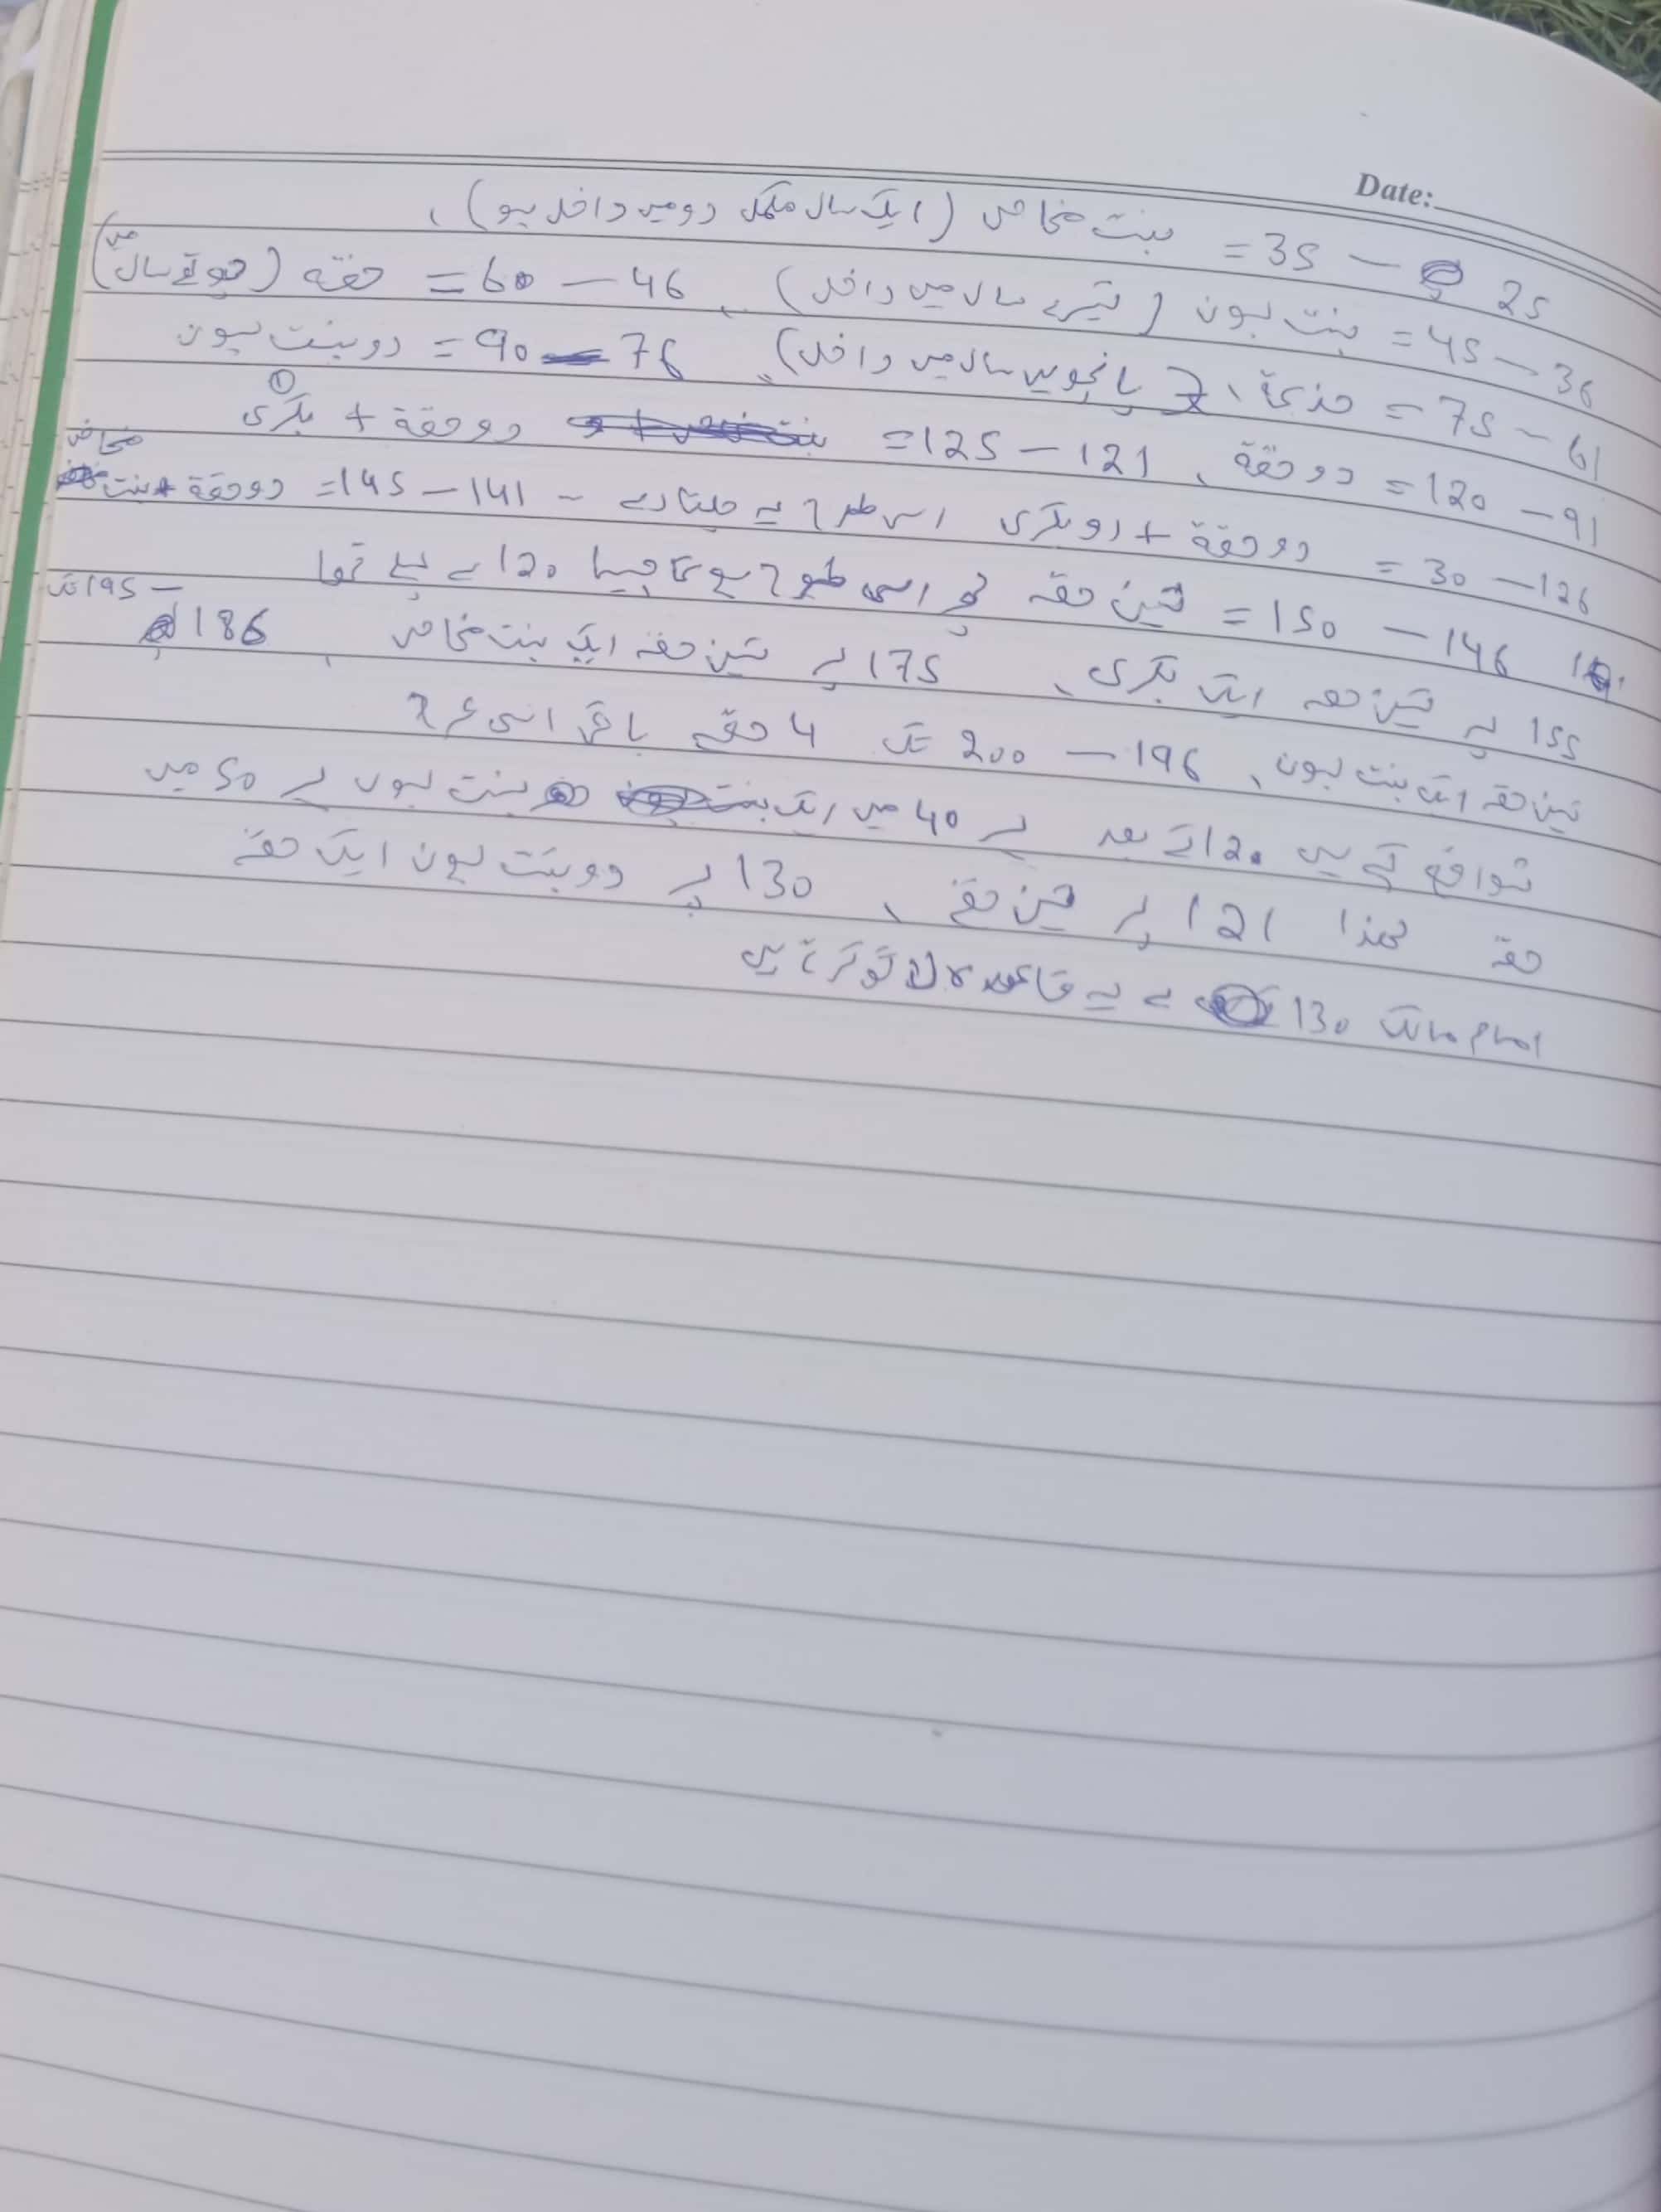 Date:
25 — 35 = بنت مخاض (ایک سال مکمل دو میں داخل ہو)،
36 — 45 = بنت لبون (تیسرے سال میں داخل)، 46 — 60 = حقہ (چوتھے سال میں)
61 — 75 = جذعۃ، پانچویں سال میں داخل)، 76 — 90 = دو بنت لبون
91 — 120 = دو حقۃ، 121 — 125 = دو حقۃ + ① بکری
126 — 30 = دو حقۃ + دو بکری اس طرح یہ چلتا رہے – 141 — 145 = دو حقۃ + بنت مخاض
146 — 150 = تین حقہ پھر اسی طرح ہوگا جیسا 120 سے پہلے تھا
155 پر تین حقہ ایک بکری، 175 پر تین حقہ ایک بنت مخاض، 186 — 195 تک
تین حقہ ایک بنت لبون، 196 — 200 تک 4 حقے باقی اسی طرح
شوافع کہتے ہیں 120 کے بعد ہر 40 میں ایک بنت لبون ہر 50 میں
حقہ لھذا 121 پر تین حقے، 130 پر دو بنت لبون ایک حقہ
امام مالک 130 سے یہ قاعدہ لاگو کرتے ہیں